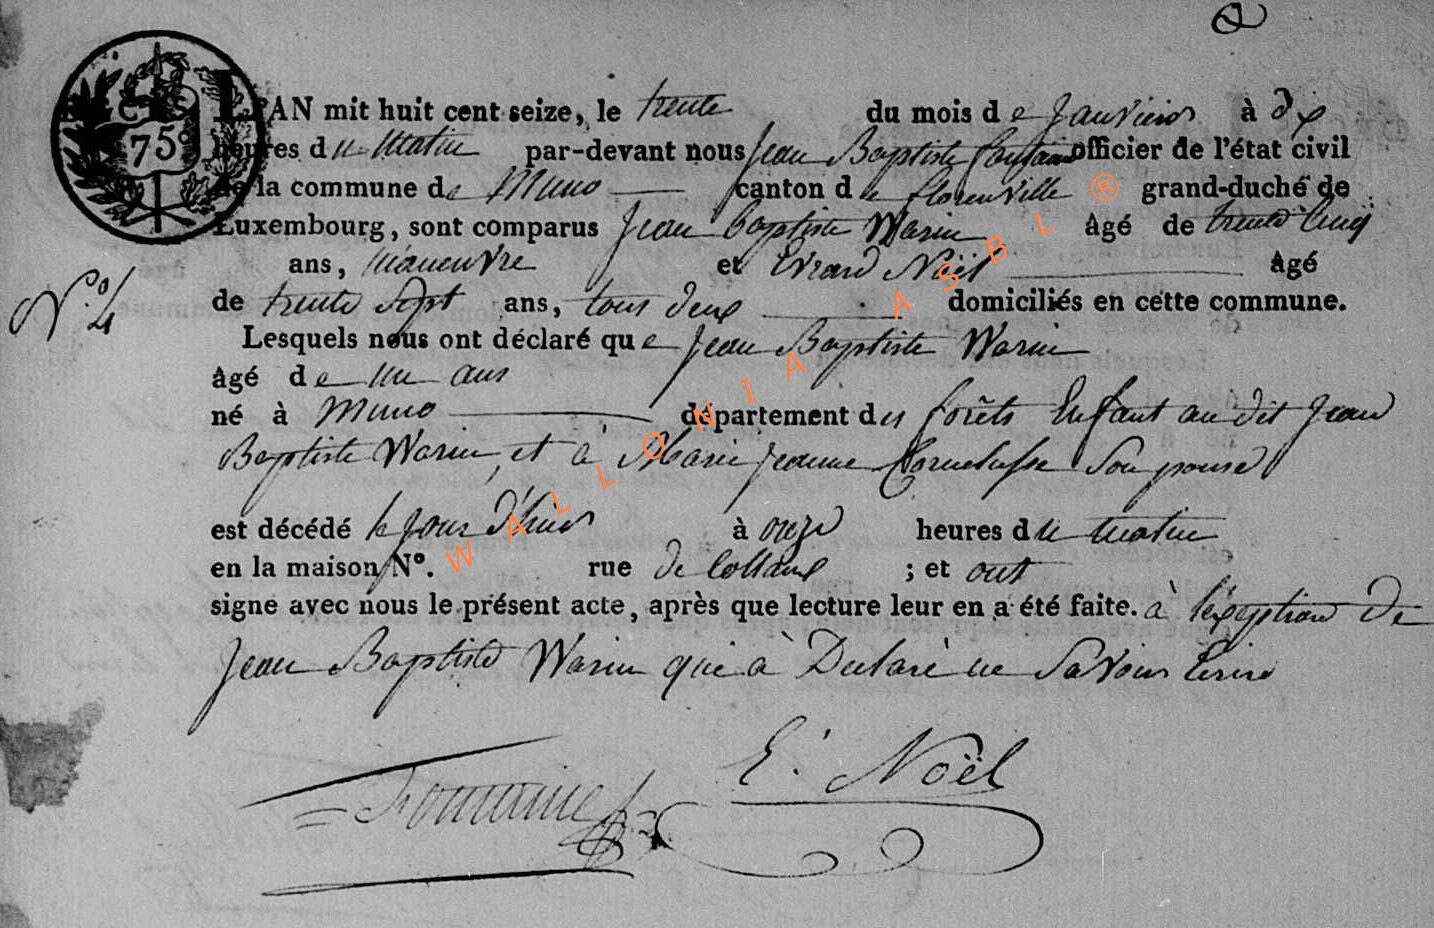 L'AN mit huit cent seize, le trente du mois de Janvier à dix
heures du Matin par-devant nous Jean Baptiste officier de l'état civil
de la commune de Muno canton de florenville grand-duché de
Luxembourg, sont comparus Jean Baptiste Warin Agé de trente Cinq
ans, Maneuvre et Evrard Noël Agé
N.o 4
de trente Sept ans, tous deux domiciliés en cette commune.
Lesquels nous ont déclaré que Jean Baptiste Warin
Agé de un ans
né à Muno département des forêts Enfant au dit Jean
Baptiste Warin et à Marie Jeanne Son pouse
est décédé le Jour d'hier à onze heures du matin
en la maison N°. rue de ; et ont
signe avec nous le présent acte, après que lecture leur en a été faite. à l'exeption de
Jean Baptiste Warin qui à Declaré ne Savoir Ecrire
E. Noël
75
WALLONIA ASBL ®